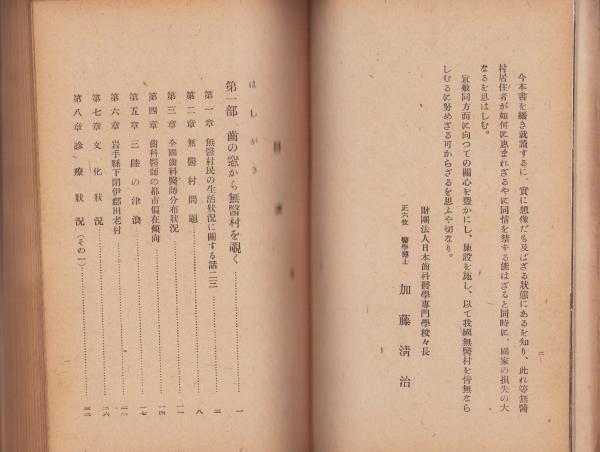 今本書を繙き就讀するに、實に想像だも及ばざる狀態にあるを知り、此れ等無醫
村居住者が如何に惠まれざるやに同情を禁ずる能はざると同時に、國家の損失の大
なるを思はしむ。
宜敷同方面に向つての關心を豊かにし、施設を施し、以て我國無醫村を皆無なら
しむるに努めざる可からざるを思ふや切なり。
財團法人日本齒科醫學專門學校々長
正六位 醫學博士 加藤淸治
二
はしがき
第一部 齒の窓から無醫村を覗く……一
第一章 無醫村民の生活狀況に關する話二三……三
第二章 無醫村問題……八
第三章 全國齒科醫師分布狀況……一一
第四章 齒科醫師の都市偏在傾向……一四
第五章 三陸の津浪……一七
第六章 岩手縣下閉伊郡田老村……
第七章 文化狀況……二六
第八章 診療狀況(その一)……三二